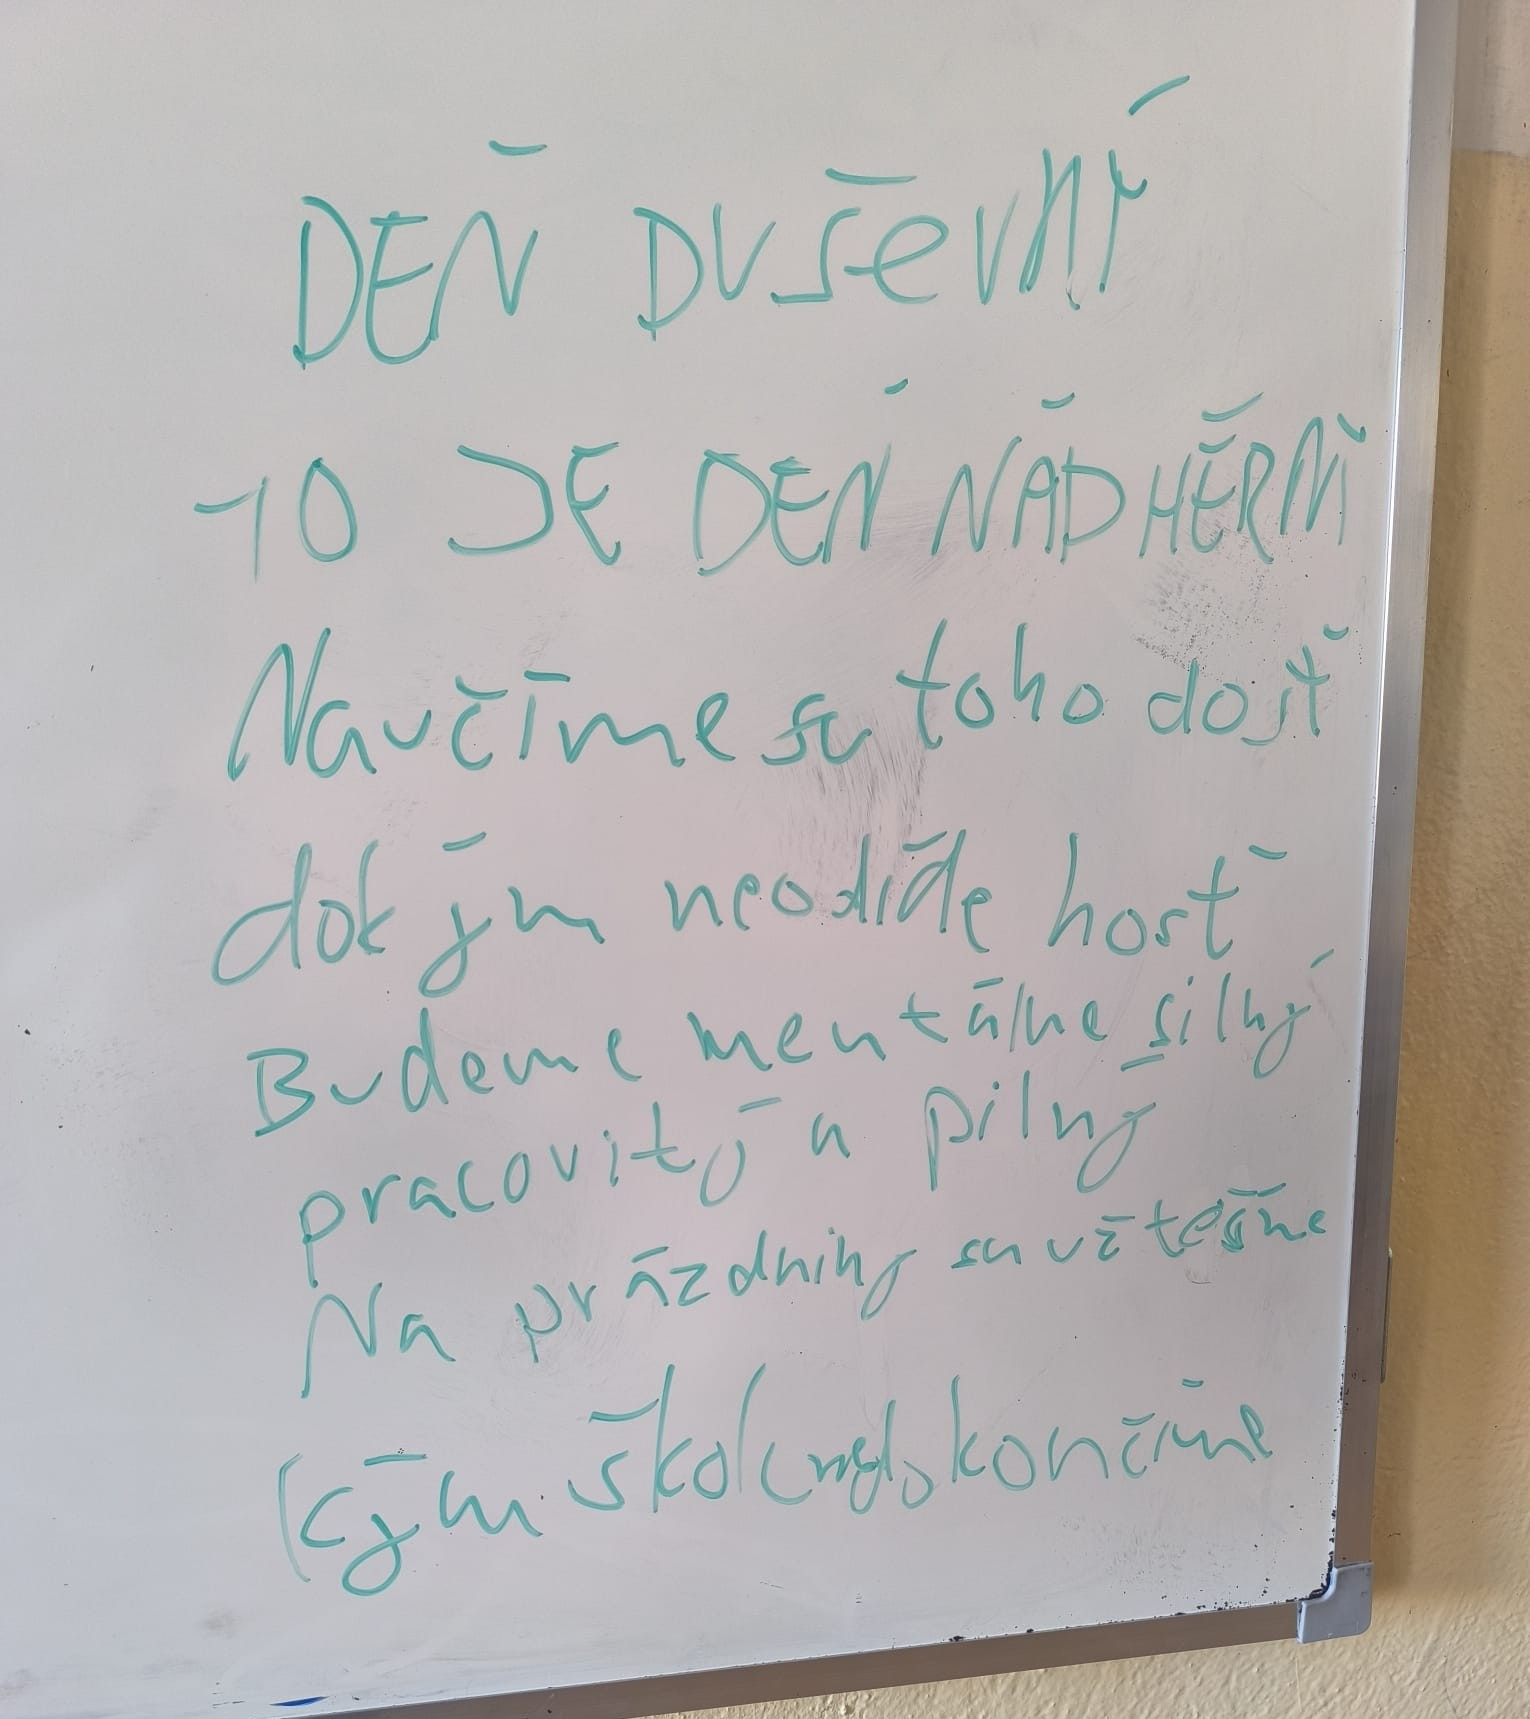 DEŇ DUŠEVNÝ
TO JE DEŇ NÁDHERNÝ
Naučíme sa toho dosť
dokým neodíde hosť
Budeme mentálne silný
pracovitý a pilný
Na prázdniny sa už tešíme
kým školu nedokončíme